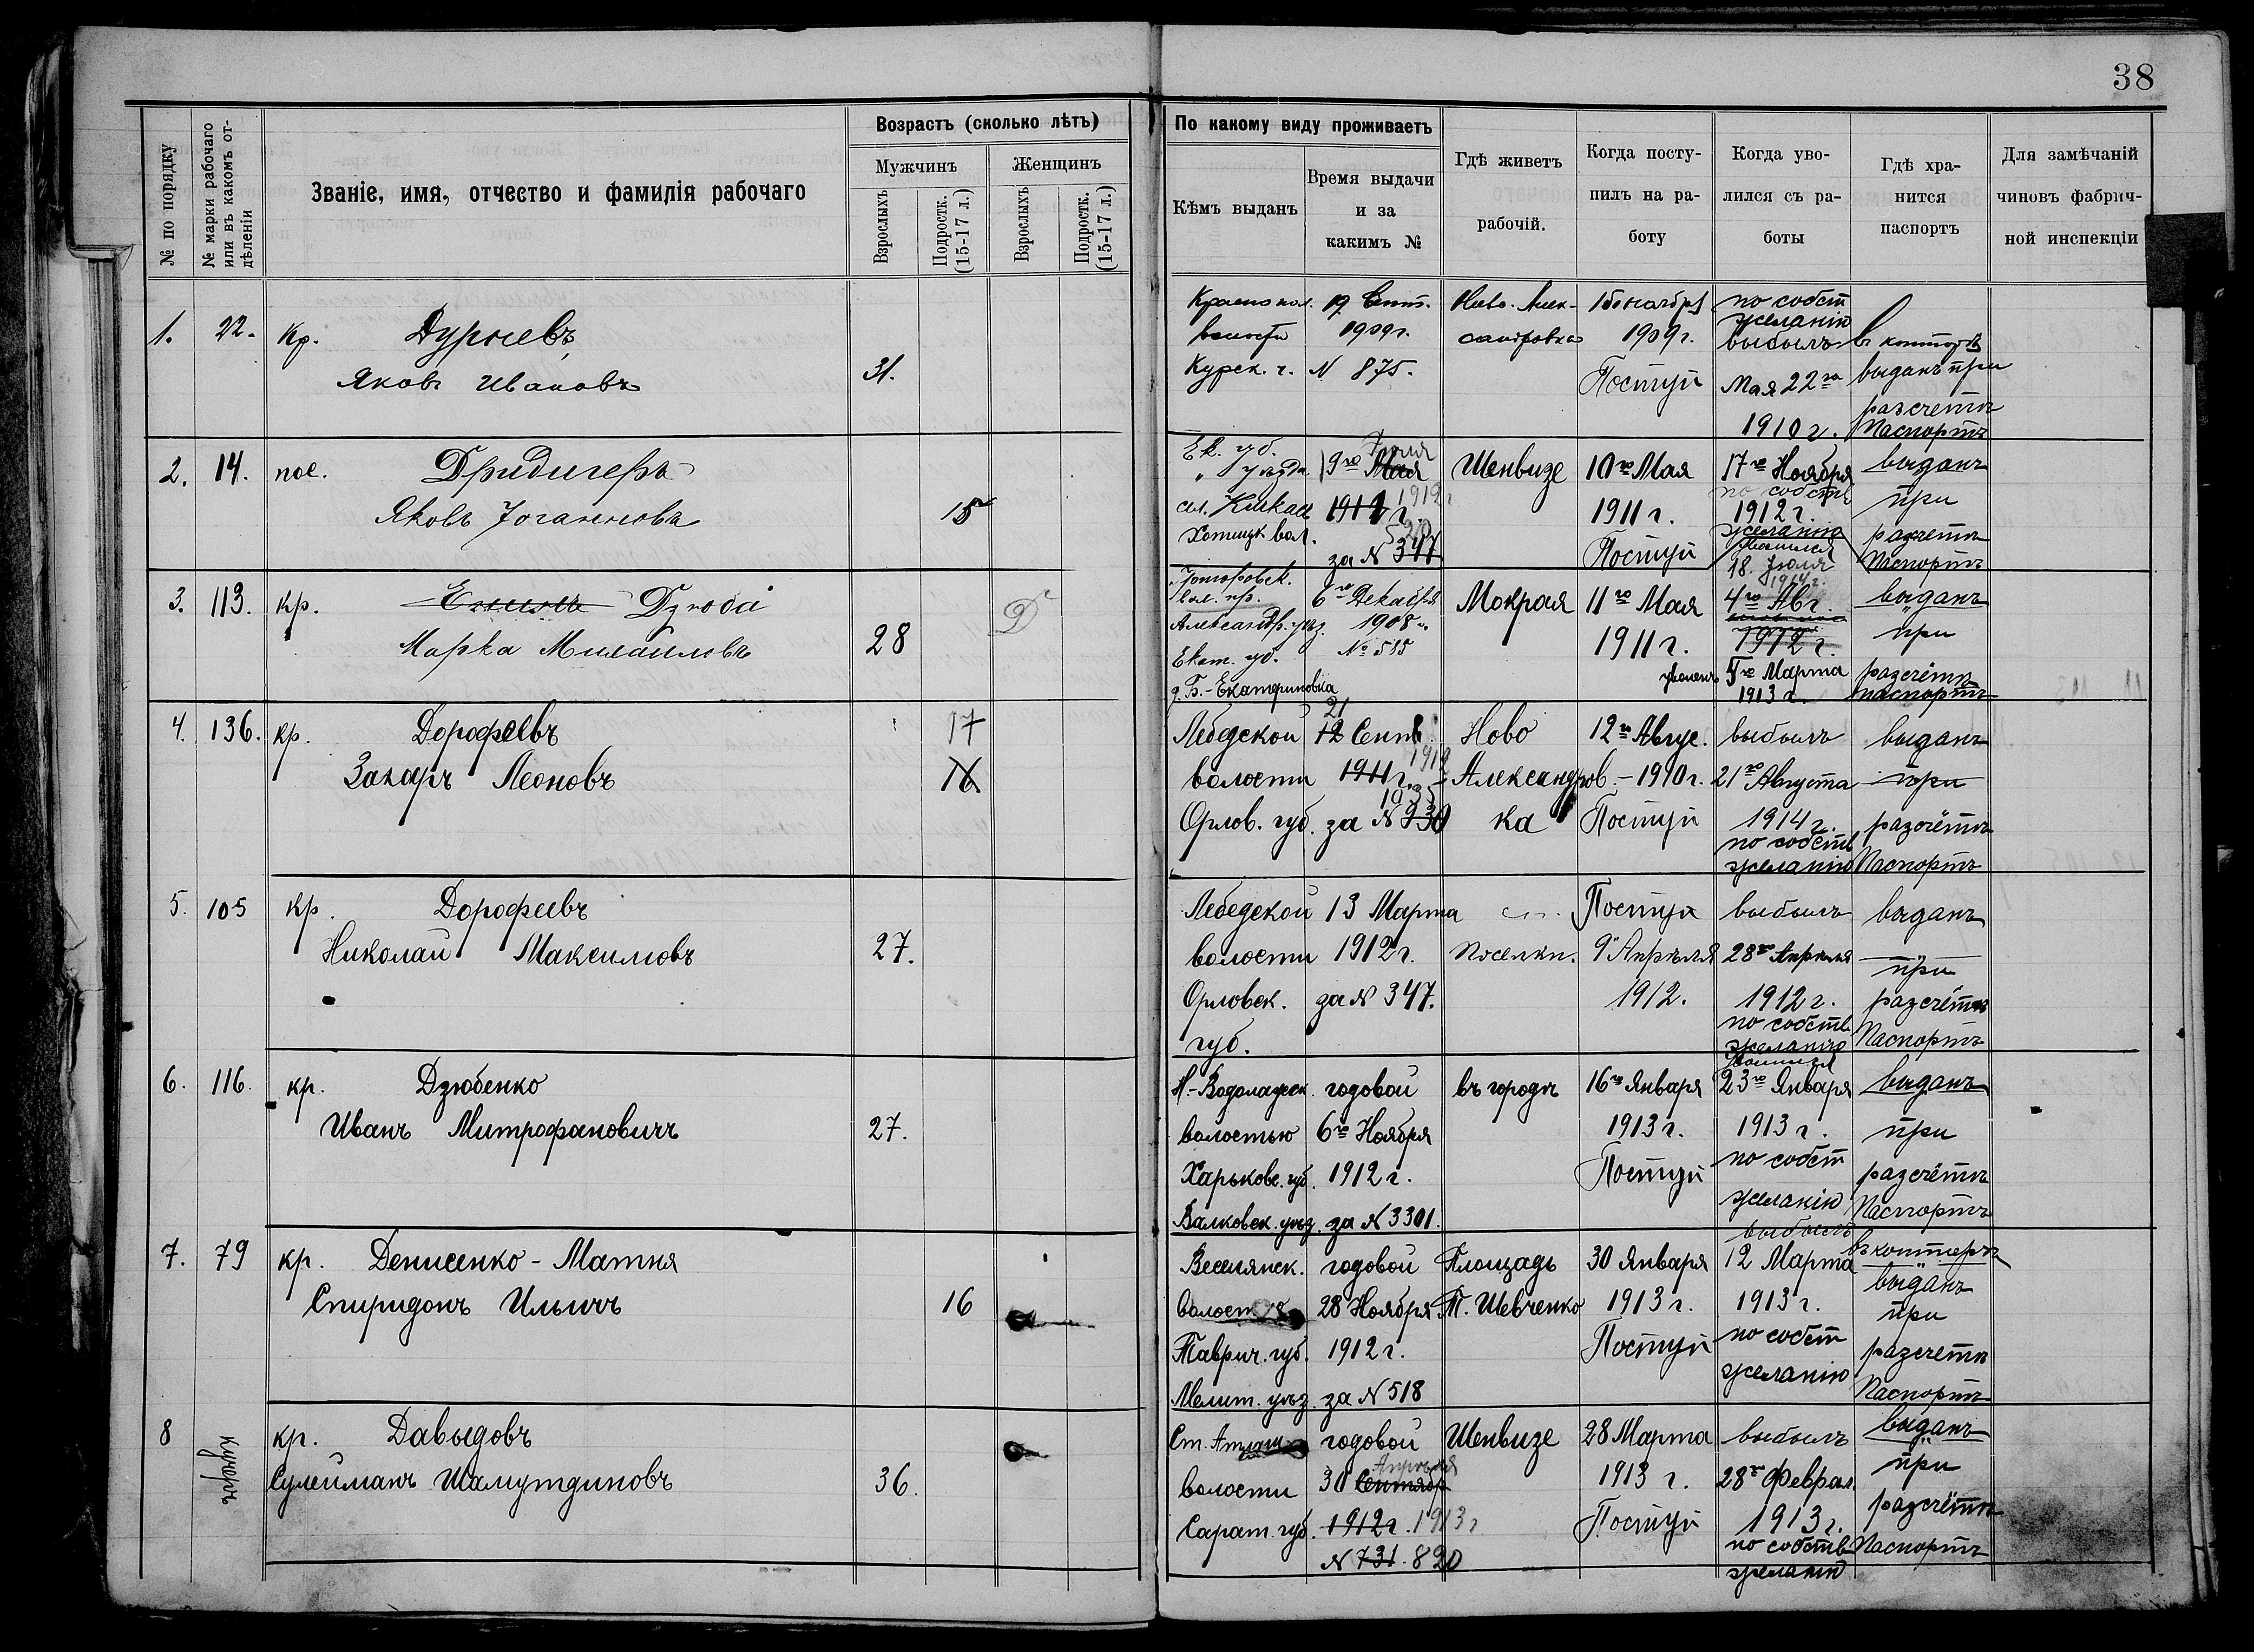 38
№ по порядку
№ марки рабочаго или въ какомъ отдѣленіи
Званіе, имя, отчество и фамилія рабочаго
Возрастъ (сколько лѣтъ)
Мужчинъ
Женщинъ
Взрослыхъ
Подростк. (15-17 л.)
Взрослыхъ
Подростк. (15-17 л.)
По какому виду проживаетъ
Кѣмъ выданъ
Время выдачи
и за
какимъ №
Гдѣ живетъ
рабочій.
Когда посту-
пилъ на ра-
боту
Когда уво-
лился съ ра-
боты
Гдѣ хра-
нится
паспортъ
Для замѣчаній
чиновъ фабрич-
ной инспекціи
1.
22.
кр.
Дурневъ
Яковъ Ивановъ
31.
волости
Курск. г.
19 Сент.
1909 г.
N 875.
Ново-Алек-
сандровка
ноября
1909 г.
Поступ
по собст
желанію
выбылъ
Мая 22го
1910 г.
в конторѣ
выданъ при
разсчетѣ
Паспортъ
2.
14.
пос.
Дридигеръ
Яковъ Іоганновъ
15
Ек. губ.
" уѣзда
Хотицк вол.
Іюля
9го Мая
1911 г. 1912 г
520
за N 347
Шенвизе
10го Мая
1911 г.
Поступ
17го Ноября
по собств
1912 г.
желанію
18. Іюля
1914 г.
выданъ
при
разчетѣ
Паспортъ
3.
113.
кр.
Дзюба
Марка Михаиловъ
28
D
вол. пр.
Александр. уѣз.
Екат. губ.
д. Б.-Екатериновка
6го Декабря
1908 г.
№ 585
Мокрая
11го Мая
1911 г.
4го Авг.
1912 г.
уволенъ 5го Марта
1913 г.
выданъ
при
разсчётѣ
паспортъ
4.
136.
кр.
Дорофеевъ
Захаръ Леоновъ
17
16
Лебедской
волости
Орлов. губ.
21
12 Сентб.
1911 г. 1912
1035
за N 930
Ново
Александров-
ка
12го Авгус.
1910 г.
Поступ
выбылъ
21го Августа
1914 г.
по собств
желанію
выданъ
при
разсчётѣ
Паспортъ
5.
105
кр.
Дорофеевъ
Николай Максимовъ
27.
Лебедской
волости
Орловск.
губ.
13 Марта
1912 г.
за N 347.
поселки.
Поступ
9го Апрѣля
1912.
выбылъ
28го Апрѣля
1912 г.
по собств
желанію
выданъ
при
разсчётѣ
Паспортъ
6.
116.
кр.
Дзюбенко
Иванъ Митрофановичъ
27.
Н.-Водолажск.
волостью
Харьковс. губ.
Валковск. уѣзд.
годовой
6го Ноября
1912 г.
за N 3301.
въ городѣ
16го Января
1913 г.
Поступ
23го Января
1913 г.
по собст
желанію
выданъ
при
разсчётѣ
Паспортъ
7.
79
кр. Денисенко-Матня
Спиридонъ Ильичъ
16
Веселянск.
Таврич. губ.
Мелит. уѣзд.
годовой
28 Ноября
1912 г.
за N 518
Площадь
Т. Шевченко
30 Января
1913 г.
Поступ
выбылъ
12 Марта
1913 г.
по собст
желанію
въ конторѣ
выданъ
при
разсчетѣ
Паспортъ
8
кучеръ
кр. Давыдовъ
Сулейманъ Шамутдиновъ
36.
волости
Сарат. губ.
годовой
Апрѣля
30 Сентябр
1912 г. 1913 г
N 731. 820
Шенвизе
28 Марта
1913 г.
Поступ
выбылъ
28го Феврал.
1913 г.
по собств
желанію
выданъ
при
разсчётѣ
Паспортъ